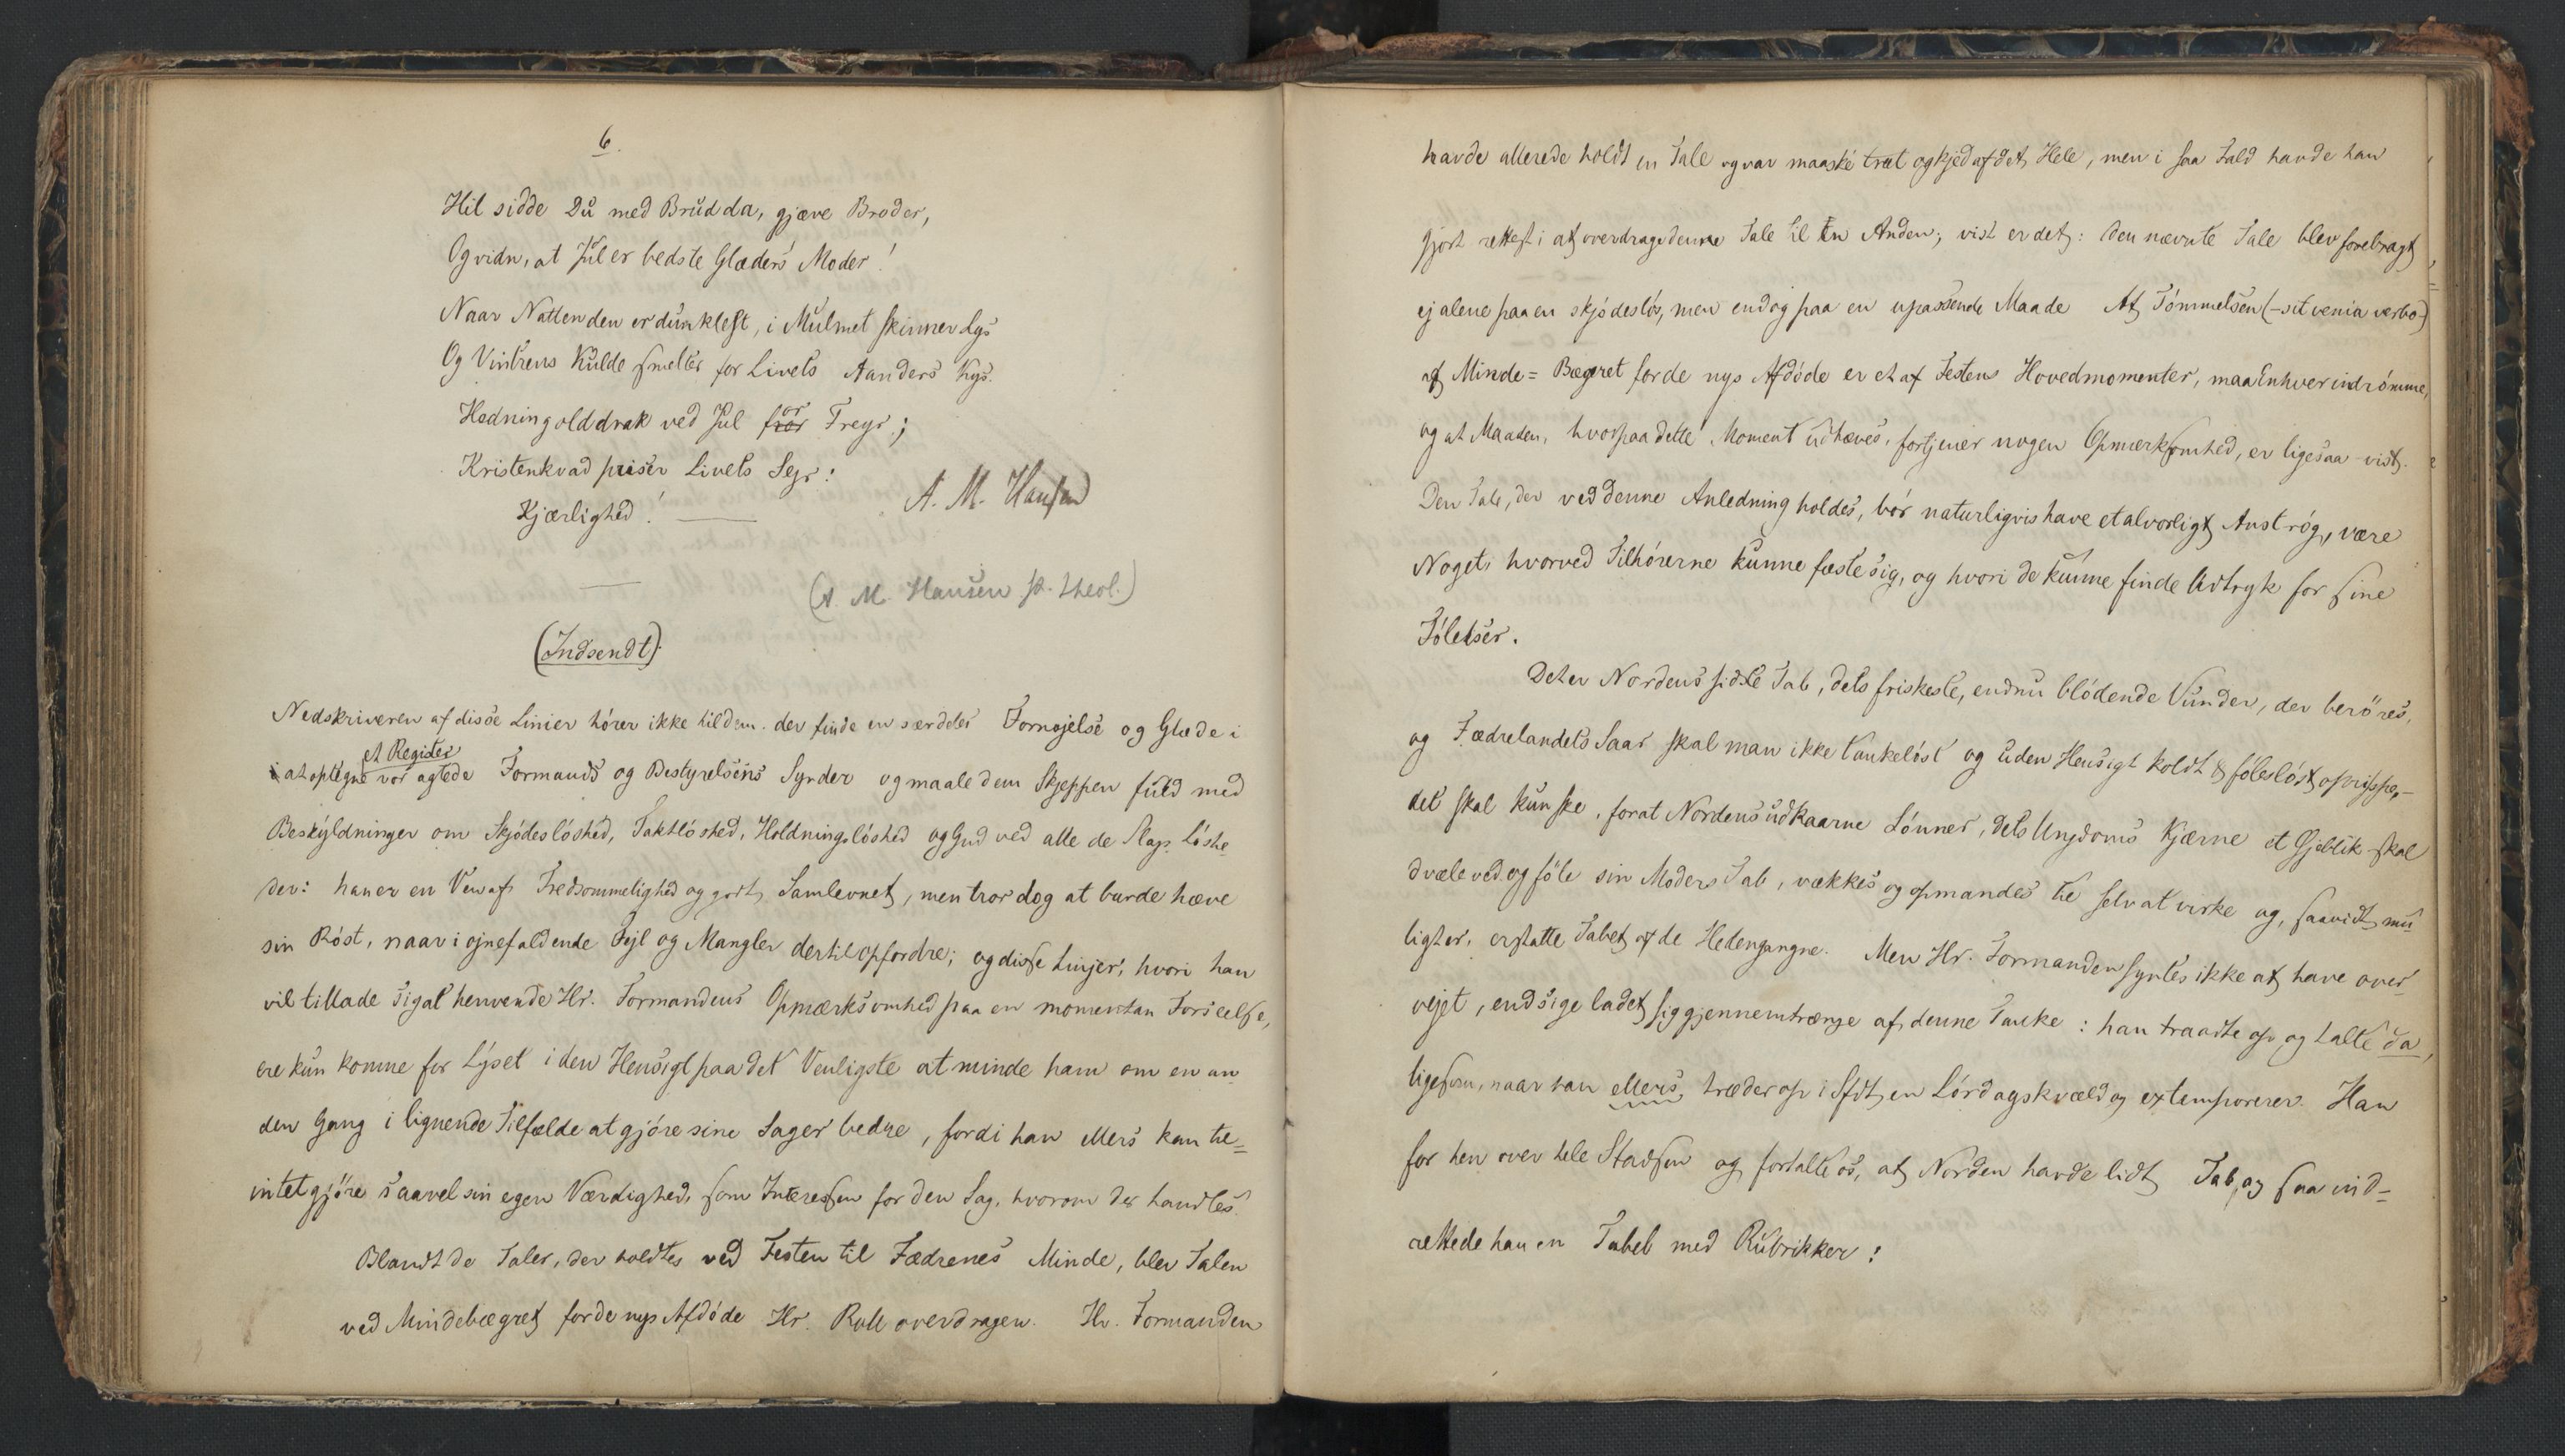 6.
Hil sidde Du med Brud da, gjæve Broder,
Og vidn, at Jul er bedste Glæders Moder!
Naar Natten den er dunklest, i Mulmet skinner Lys
Og Vintrens Kulde smelter for Livets Aanders Kys.
Hedningold drak ved Jul for Freyr;
Kristenkvad priser Livets Sejr:
Kjærlighed! —
A. M. Hansen
(A. M. Hansen st. theol.)
(Indsendt).
Nedskriveren af disse Linier hörer ikke til dem. der finde en særdeles Fornøjelse og Glæde i
at optegne et Register vor agtede Formands og Bestyrelsens Synder og maale dem Skjeppen fuld med
Beskyldninger om Skjödeslöshed, Taktlöshed, Holdningslöshed og Gud ved alle de Slags Löshe
der: han er en Ven af Fredsommelighed og godt Samlevnet, men tror dog at burde hæve
sin Röst, naar i øjnefaldende Fejl og Mangler dertil opfordre; og disse Linjer, hvori han
vil tillade sig at henvende Hr. Formandens Opmærksomhed paa en momentan Forseelse,
ere kun komne for Lyset i den Hensigt paa det Venligste at minde ham om en an
den Gang i lignende Tilfælde at gjöre sine Sager bedre, fordi han ellers kan til=
intetgjöre saavel sin egen Værdighed, som Interessen for den Sag, hvorom der handles.
Blandt de Taler, der holdtes ved Festen til Fædrenes Minde, blev Talen
ved Mindebægret for de nys Afdöde Hr. Roll overdragen. Hr. Formanden
havde allerede holdt en Tale og var maaské træt og kjed af det Hele, men i saa Fald havde han
gjort rettest i at overdrage denne Tale til En Anden; vist er det: den nævnte Tale blev forebragt
ej alene paa en skjödeslös, men endog paa en upassende Maade At Tömmelsen (-sit venia verbo-)
af Minde= Bægret for de nys Afdöde er et af Festens Hovedmomenter, maa Enhver indrömme,
og at Maaden, hvorpaa dette Moment udhæves, fortjener nogen Opmærksomhed, er ligesaa vist.
Den Tale, der ved denne Anledning holdes, bör naturligvis have et alvorligt Anströg, være
Noget, hvorved Tilhörerne kunne fæste sig, og hvori de kunne finde Udtryk for sine
Fölelser.
Det er Nordens sidste Tab, dets friskeste, endnu blödende Vunder, der beröres,
og Fædrelandets Saar skal man ikke tankelöst og uden Hensigt koldt & fölelöst oprippe,—
det skal kun ske, for at Nordens udkaarne Sönner, dets Ungdoms Kjærne et Øjeblik skal
dvæle ved og föle sin Moders Tab, vækkes og opmandes til selv at virke og, saavidt mu
ligt er, erstatte Tabet af de Hedengangne. Men Hr. Formanden syntes ikke at have over
vejet, endsige ladet sig gjennemtrænge af denne Tanke: han traadte op og talte da,
ligesom, naar han ellers træder op i Sfdt, en Lördagskvæld og extemporerer. Han
for hen over hele Stadsen og fortalte os, at Norden havde lidt Tab, og saa ind=
rettede han en Tabel med Rubrikker: